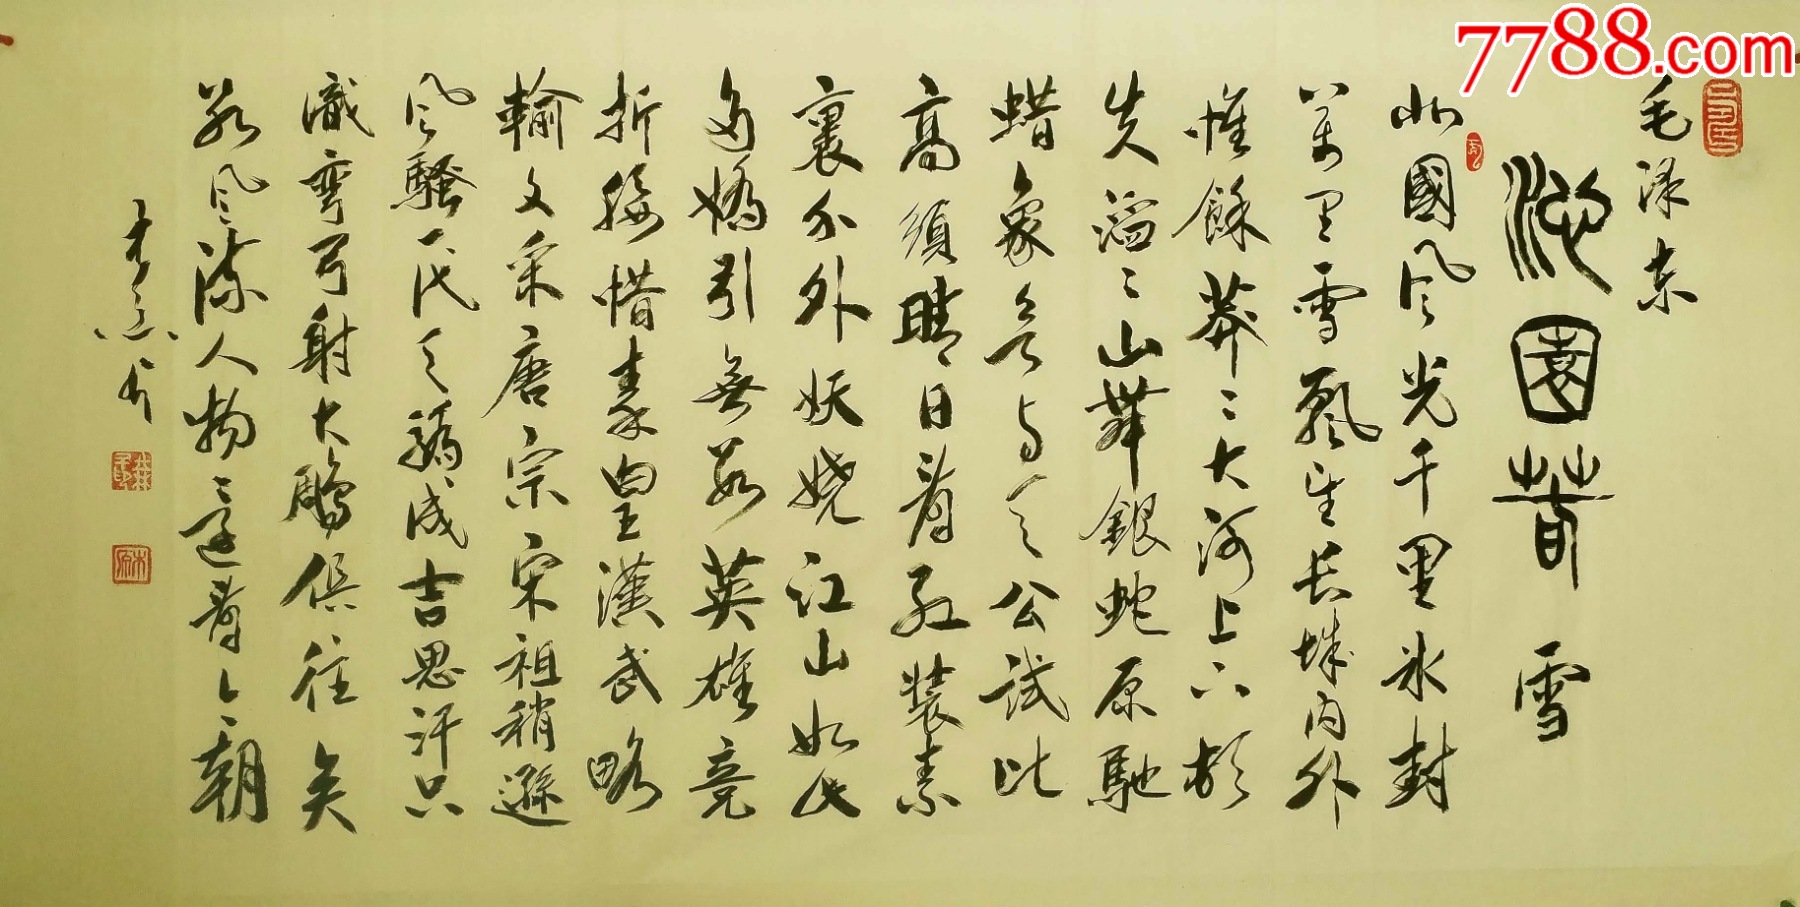 7788.com
毛泽东
沁園春 雪
北國风光千里冰封
萬里雪飄望长城内外
惟餘莽々大河上下頓
失滔々山舞銀蛇原馳
蜡象欲与天公試比
高須晴日看红装素
裹分外妖娆江山如此
多嬌引無数英雄竞
折腰惜秦皇漢武略
輸文采唐宗宋祖稍遜
风騷一代天骄成吉思汗只
識弯弓射大鵰俱往矣
数风流人物還看今朝